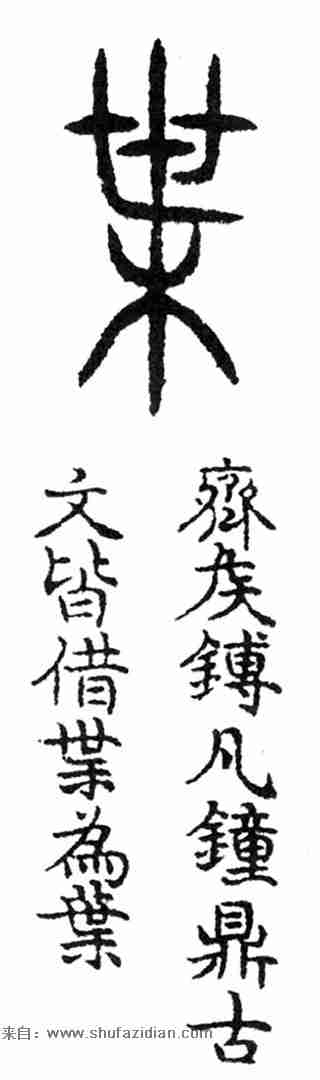 枼
齊矦鎛凡鐘鼎古
文皆借枼為葉
来自：www.shufazidian.com